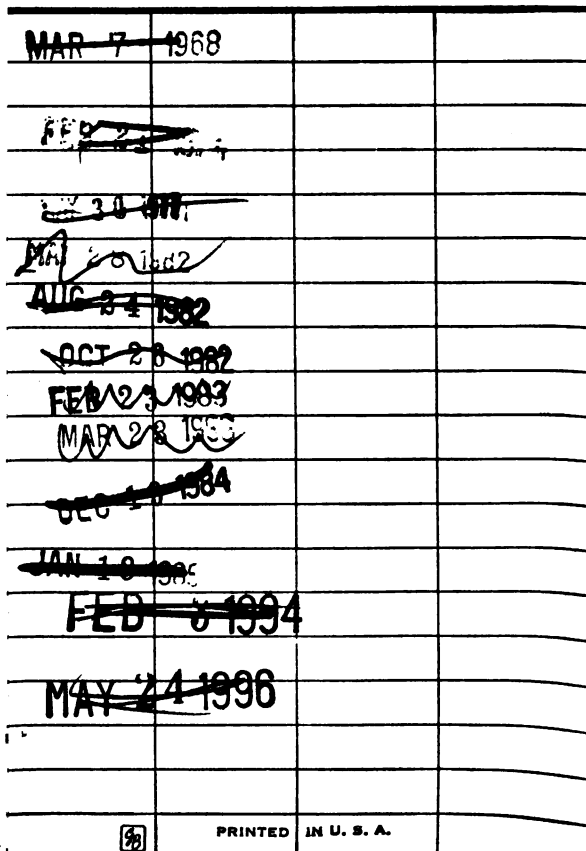 MAR 7 1968
FEB
30
MAR 28 1982
AUG 24 1982
OCT 28 1982
FEB 23 1983
MAR 28
DEC 1984
JAN 10
FEB 1994
MAY 24 1996
PRINTED IN U. S. A.